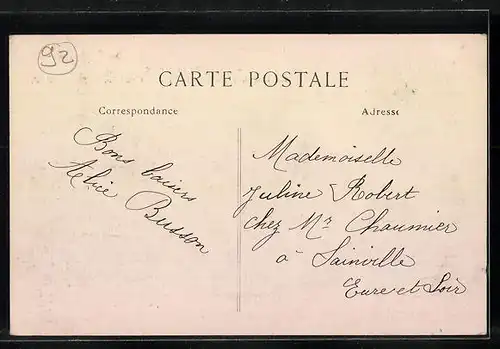 92
CARTE POSTALE
Correspondance
Adresse
Bons baisers
Alice Busson
Mademoiselle
Juline Robert
chez Mr Chaumier
à Sainville
Eure et Loir